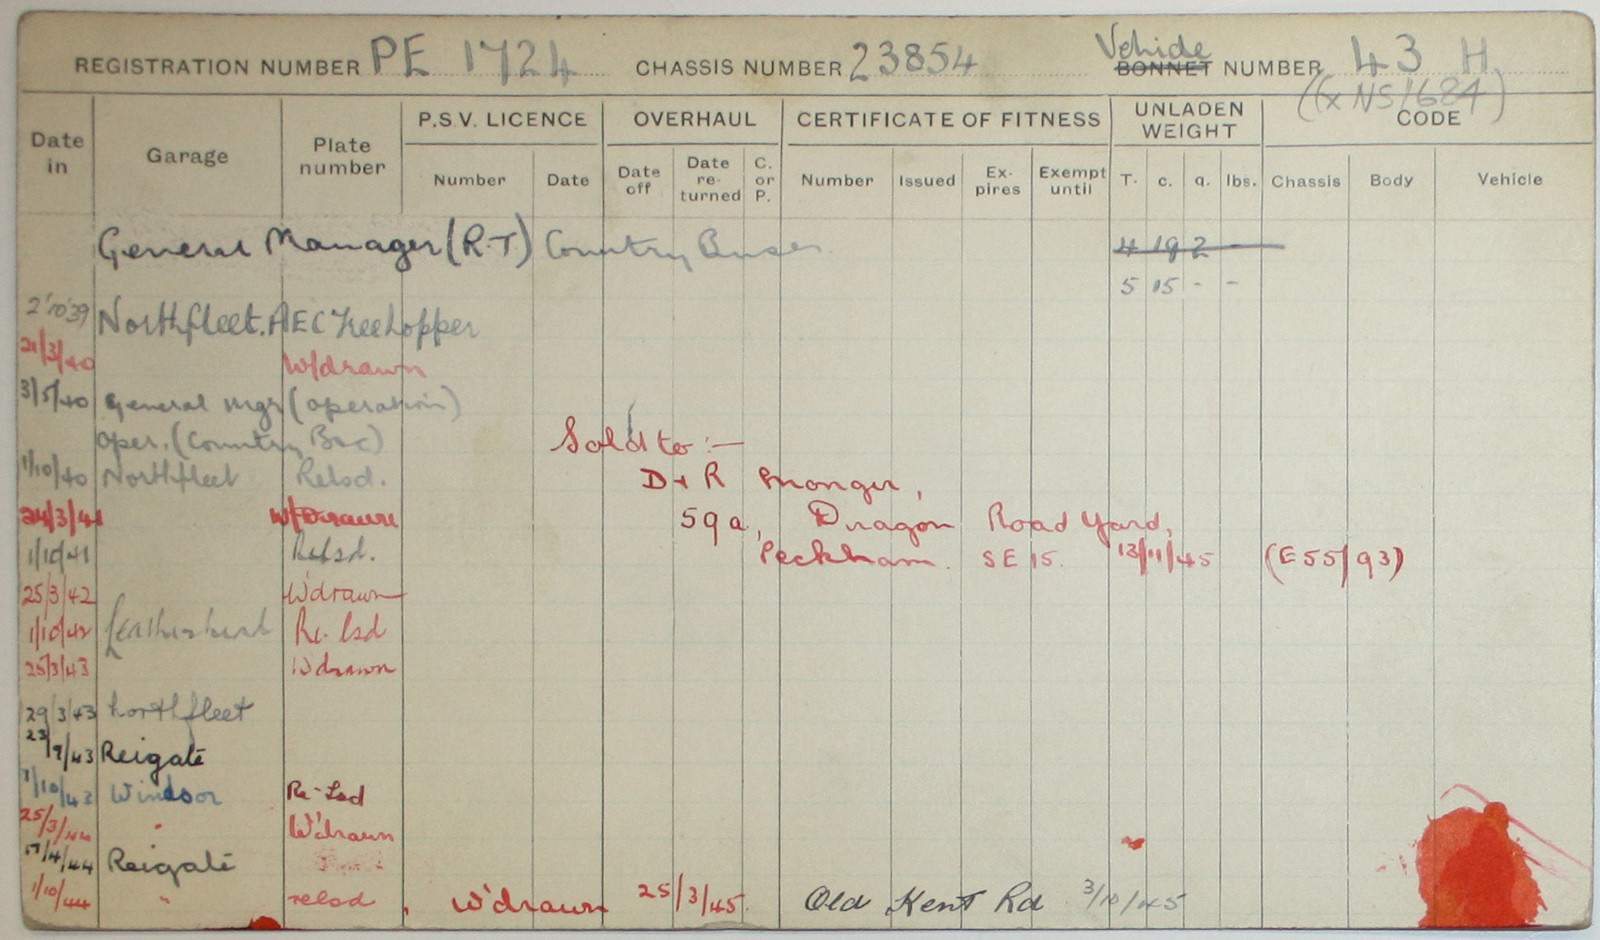 REGISTRATION NUMBER PE 1724 CHASSIS NUMBER 23854 Vehicle BONNET NUMBER 43 H
(Ex NS 1684)
Date in Garage Plate number P.S.V. LICENCE OVERHAUL CERTIFICATE OF FITNESS UNLADEN WEIGHT CODE
Number Date Date off Date re-turned C. or P. Number Issued Ex-pires Exempt until T. c. q. lbs. Chassis Body Vehicle
General Manager (R.T) Country Buses 4 19 2 -
5 15 - -
2'10'39 Northfleet. AEC Treelopper
21/3/40 W/drawn
3/5/40 General Mgr (operation)
oper. (Country Bus)
Sold to :—
1/10/40 Northfleet Relsd. D + R Monger,
24/3/41 W/Drawn 59a, Dragon Road Yard,
1/10/41 Relsd. Peckham. SE 15. 13/11/45 (E55/93)
25/3/42 W'drawn
1/10/42 Leatherhead Re-lsd
25/3/43 W'drawn
29/3/43 Northfleet
23/9/43 Reigate
1/10/43 Windsor Re-Lsd
25/3/44 " W'drawn
/4/44 Reigate
1/10/44 " relsd, W'drawn 25/3/45. Old Kent Rd 3/10/45